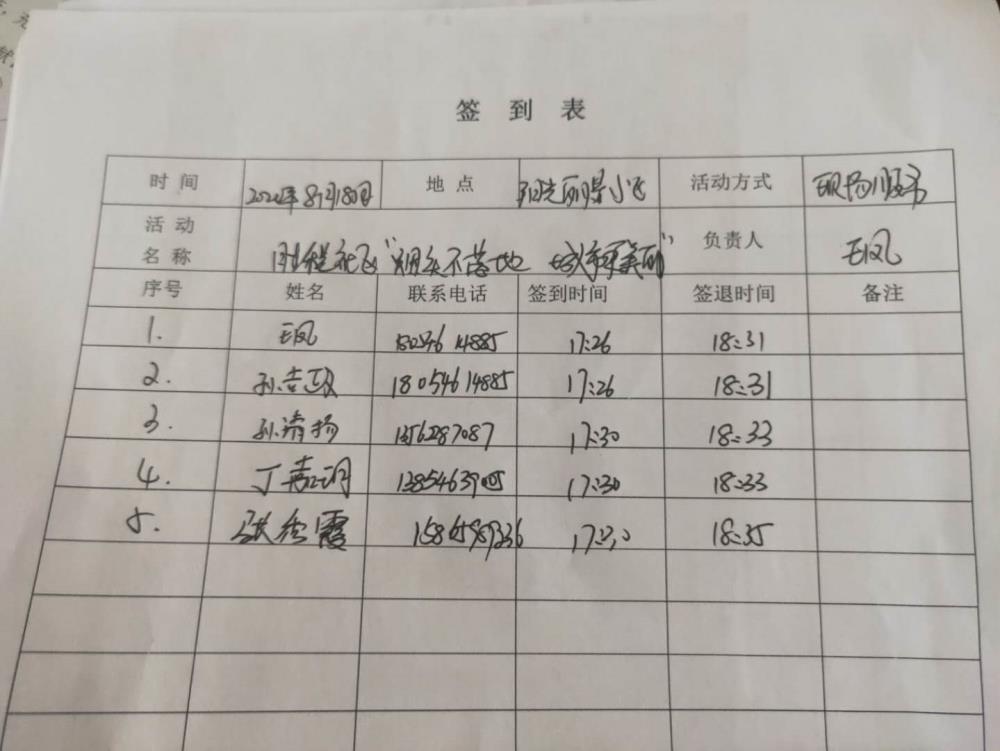 签到表
时间 8月18日 地点 阳光丽景小 活动方式 现场服务
活动名称 社区"烟头不落地 城市更美丽" 负责人 王凤
序号 姓名 联系电话 签到时间 签退时间 备注
1. 王凤 14885 17:26 18:31
2. 孙 18054614885 17:26 18:31
3. 孙清扬 17:30 18:33
4. 丁 17:30 18:33
5. 张 霞 17:30 18:35